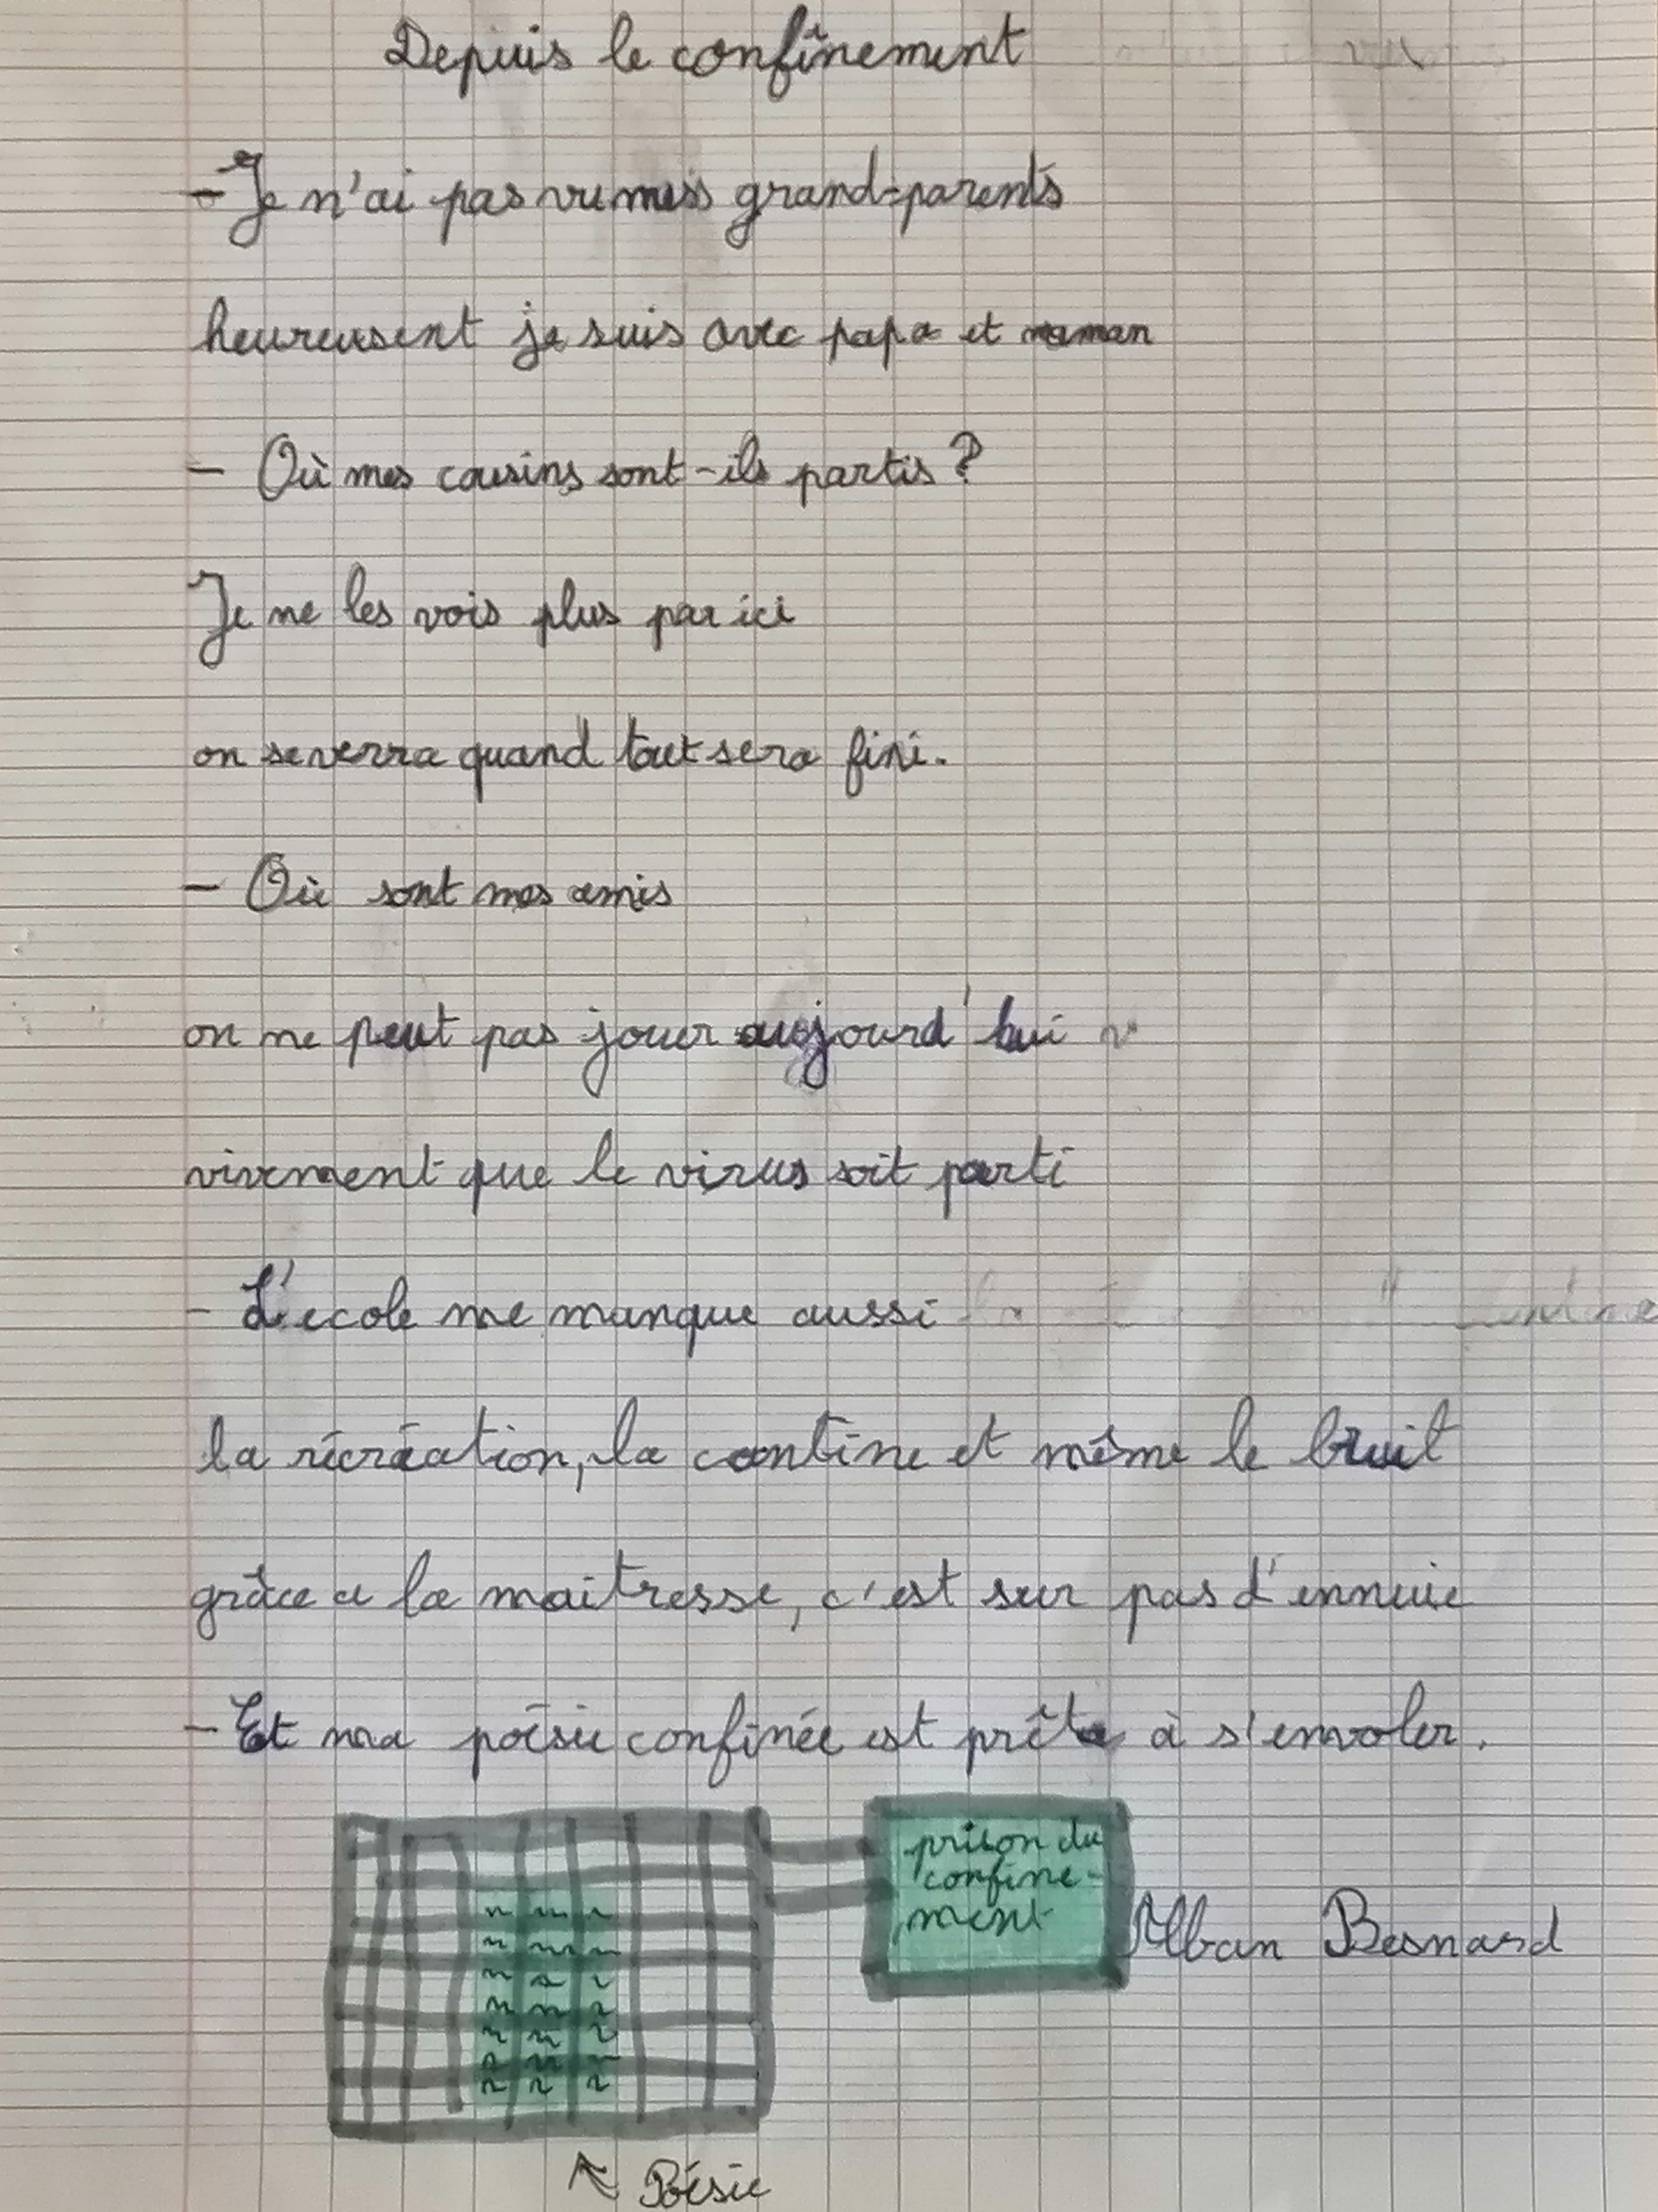 Depuis le confînement
- Je n'ai pas vu mes grand-parents
heureusent je suis avec papa et maman
- Où mes cousins sont-ils partis ?
Je ne les vois plus par ici
on se verra quand tout sera fini.
- Où sont mes amis
on ne peut pas jouer aujourd'hui
vivement que le virus soit parti
- L'ecole me manque aussi
la récréation, la cantine et même le bruit
grâce a la maitresse, c'est sur pas d'ennuie
- Et ma poésie confinée est prête à s'envoler.
prison du
confine-
ment
Alban Besnard
Poésie